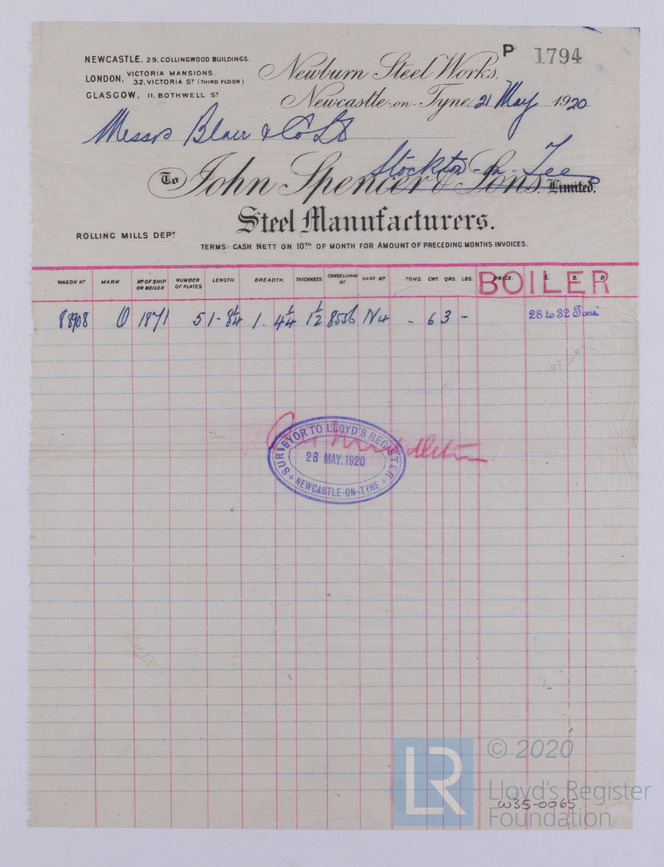 P 1794
NEWCASTLE, 29, COLLINGWOOD BUILDINGS.
LONDON, VICTORIA MANSIONS, 32, VICTORIA ST (THIRD FLOOR)
GLASGOW, 11, BOTHWELL ST
Newburn Steel Works,
Newcastle-on-Tyne, 21 May 1920
Messrs Blair & Co Ld
Stockton-on-Tees
To John Spencer & Sons, Limited.
Steel Manufacturers.
ROLLING MILLS DEPT
TERMS: CASH NETT ON 10TH OF MONTH FOR AMOUNT OF PRECEDING MONTHS INVOICES.
WAGON No MARK No OF SHIP OR BOILER NUMBER OF PLATES LENGTH. BREADTH. THICKNESS. CONSECUTIVE No CAST No TONS. CWT. QRS. LBS. PRICE. £ S. D.
BOILER
O 1871 5 1-8 1/4 1. 4 1/4 1/2 8556 - 6 3 -
28 to 32 Tons
SURVEYOR TO LLOYD'S REGISTER
28 MAY. 1920
NEWCASTLE-ON-TYNE
LR
© 2020
Lloyd's Register
Foundation
W35-0065